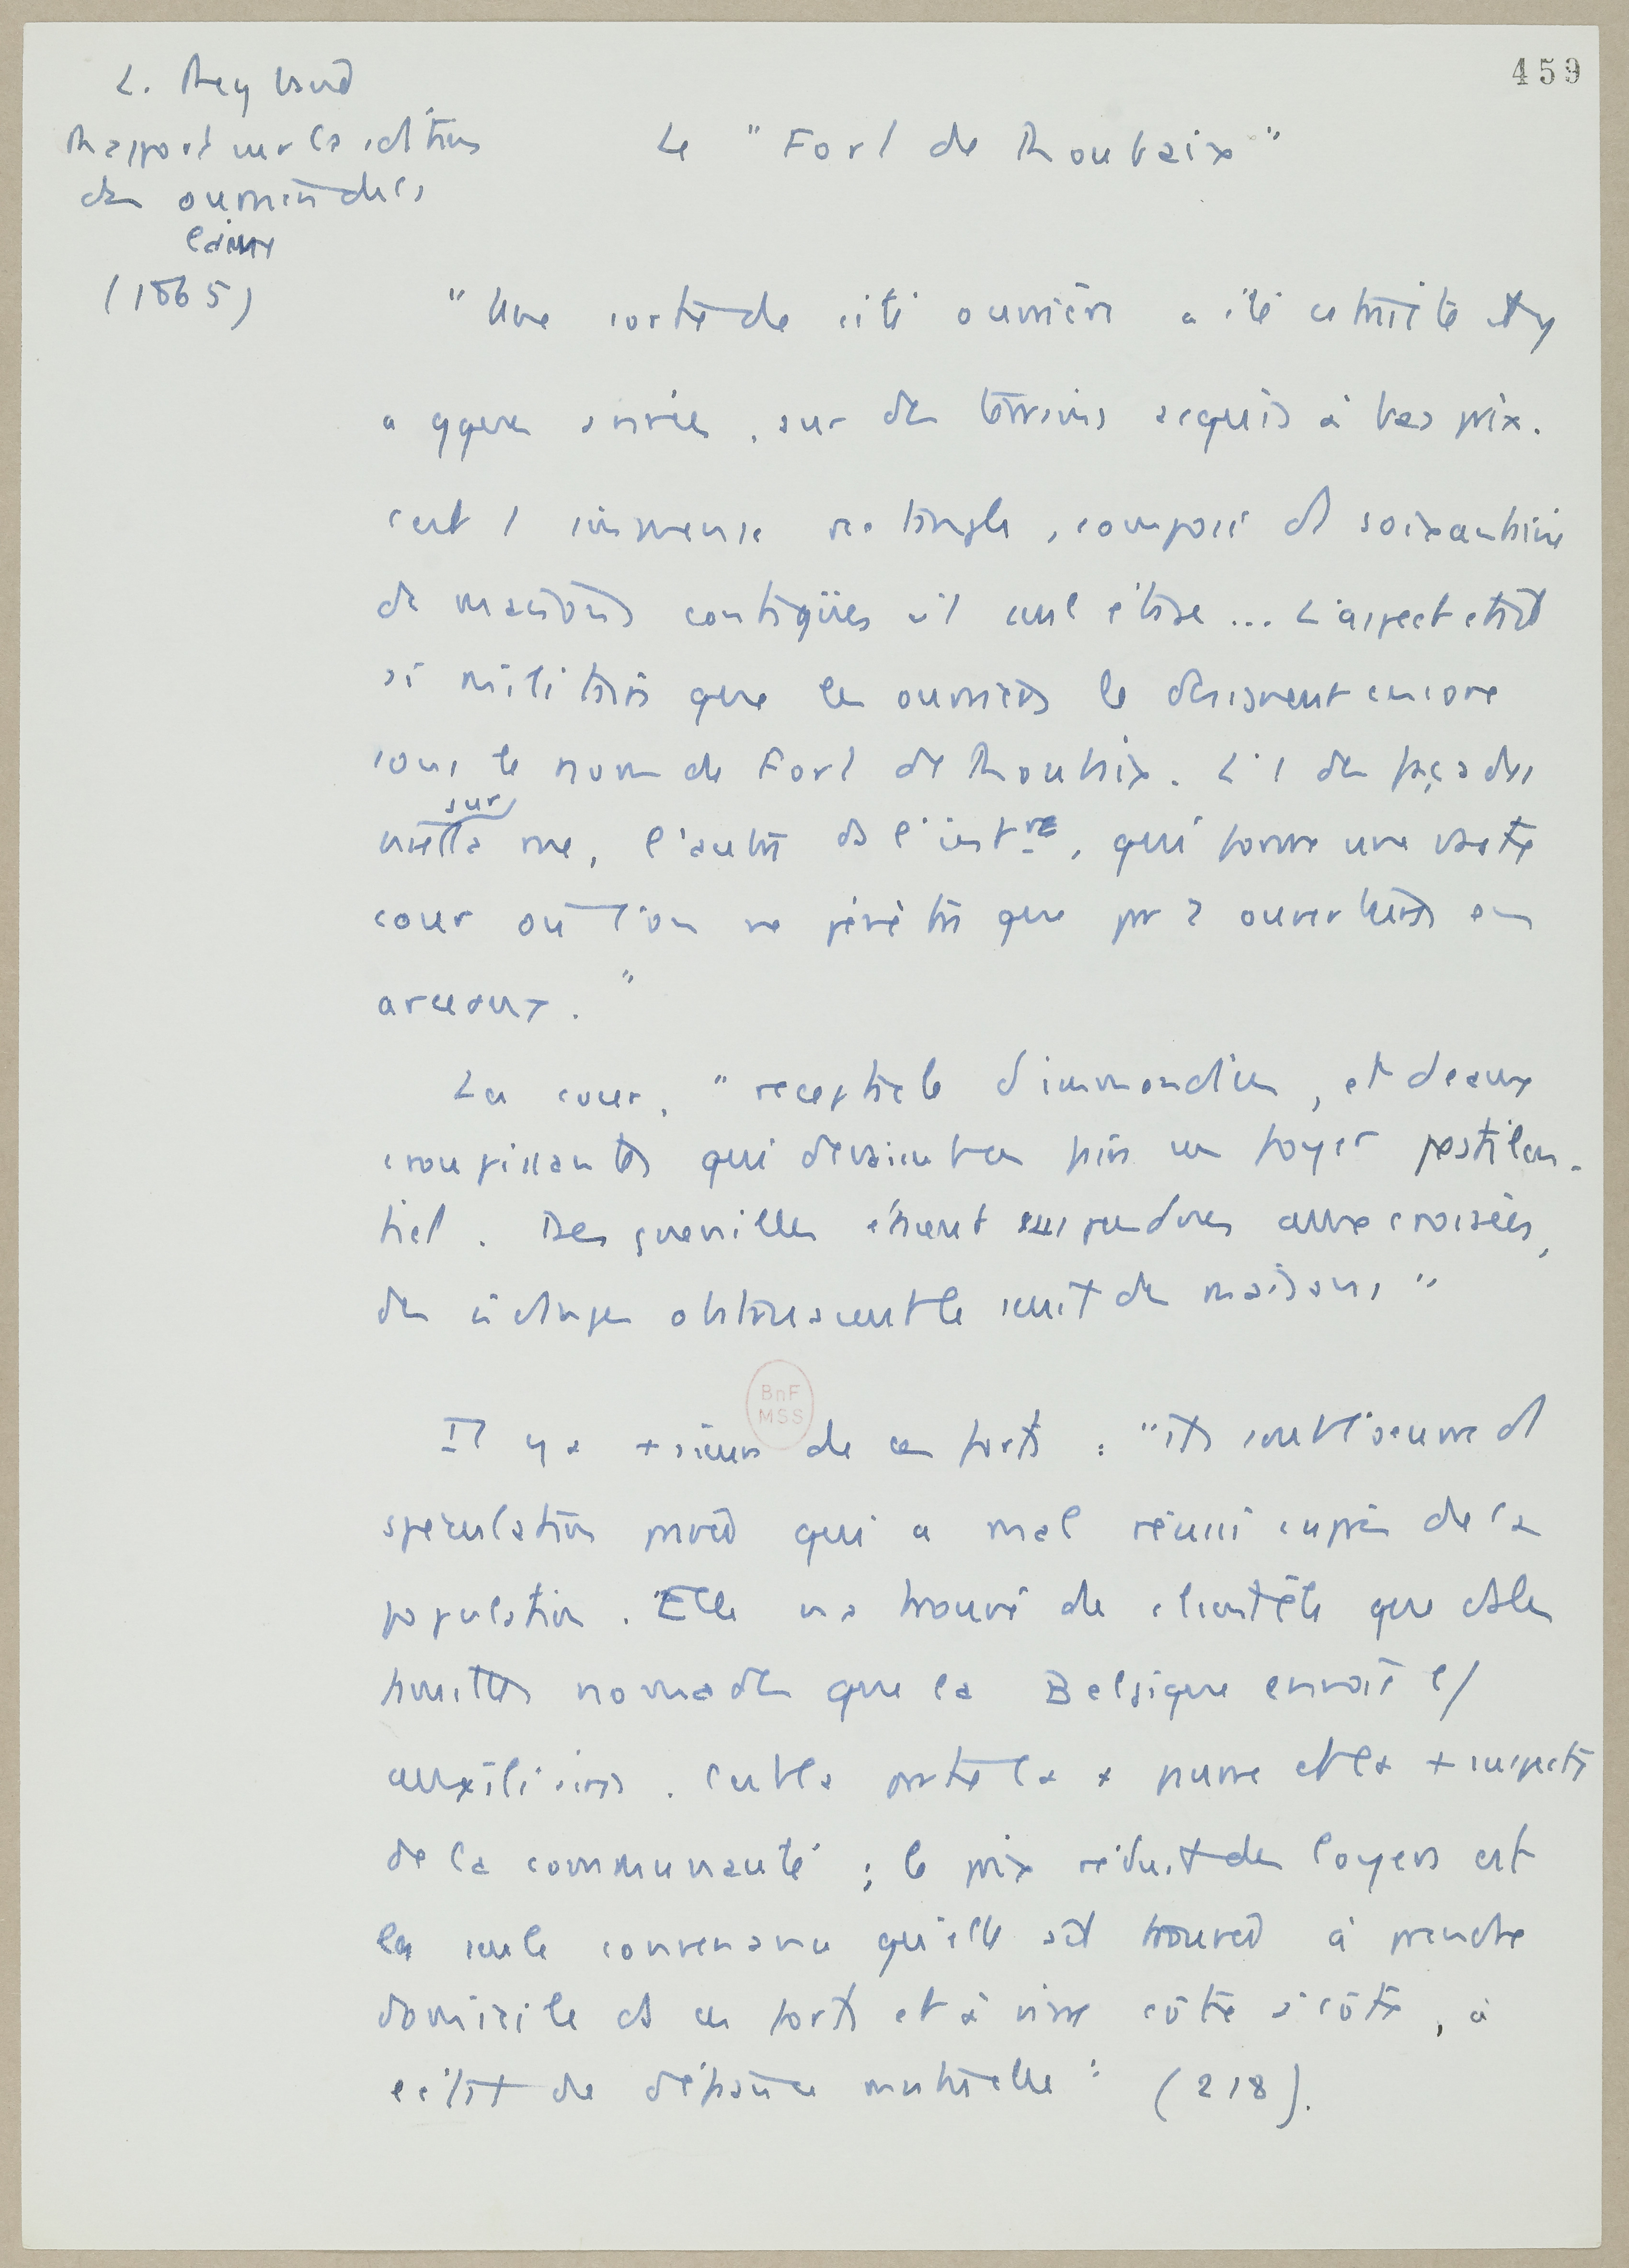 459
L. Reybaud
Rapport sur la cdtion
des ouvriers de la
laine
(1865)
Le "Fort de Roubaix"
"Une sorte de cité ouvrière a été cstruite il y
a qques années, sur des terrains acquis à bas prix.
C'est 1 immense rectangle, composé d'1 soixantaine
de maisons contiguës à 1 seul étage... L'aspect était
si militaire que les ouvriers le désignent encore
sous le nom de Fort de Roubaix. L'1 des façades
sur
met la rue, l'autre ds l'intre, qui forme une vaste
cour où l'on ne pénètre que pr 2 ouvertures en
arceaux."
La cour, "réceptacle d'immondices, et d'eaux
croupissantes qui devaient en faire un foyer pestilen-
tiel. Des guenilles étaient suspendues aux croisées,
des échappes obstruaient le seuil des maisons"
BnF
MSS
Il y a +sieurs de ces forts : "ils sont l'oeuvre d'1
spéculation privée qui a mal réussi auprès de la
population. "Elle n'a trouvé de clientèle que ds les
familles nomades que la Belgique envoie c/
auxiliaires. C'est la partie la + pauvre et la + suspecte
de la communauté ; le prix réduit des loyers est
la seule convenance qu'elle ait trouvée à prendre
domicile ds ces forts et à vivre côte à côte, à
l'état de défiance mutuelle" (218).